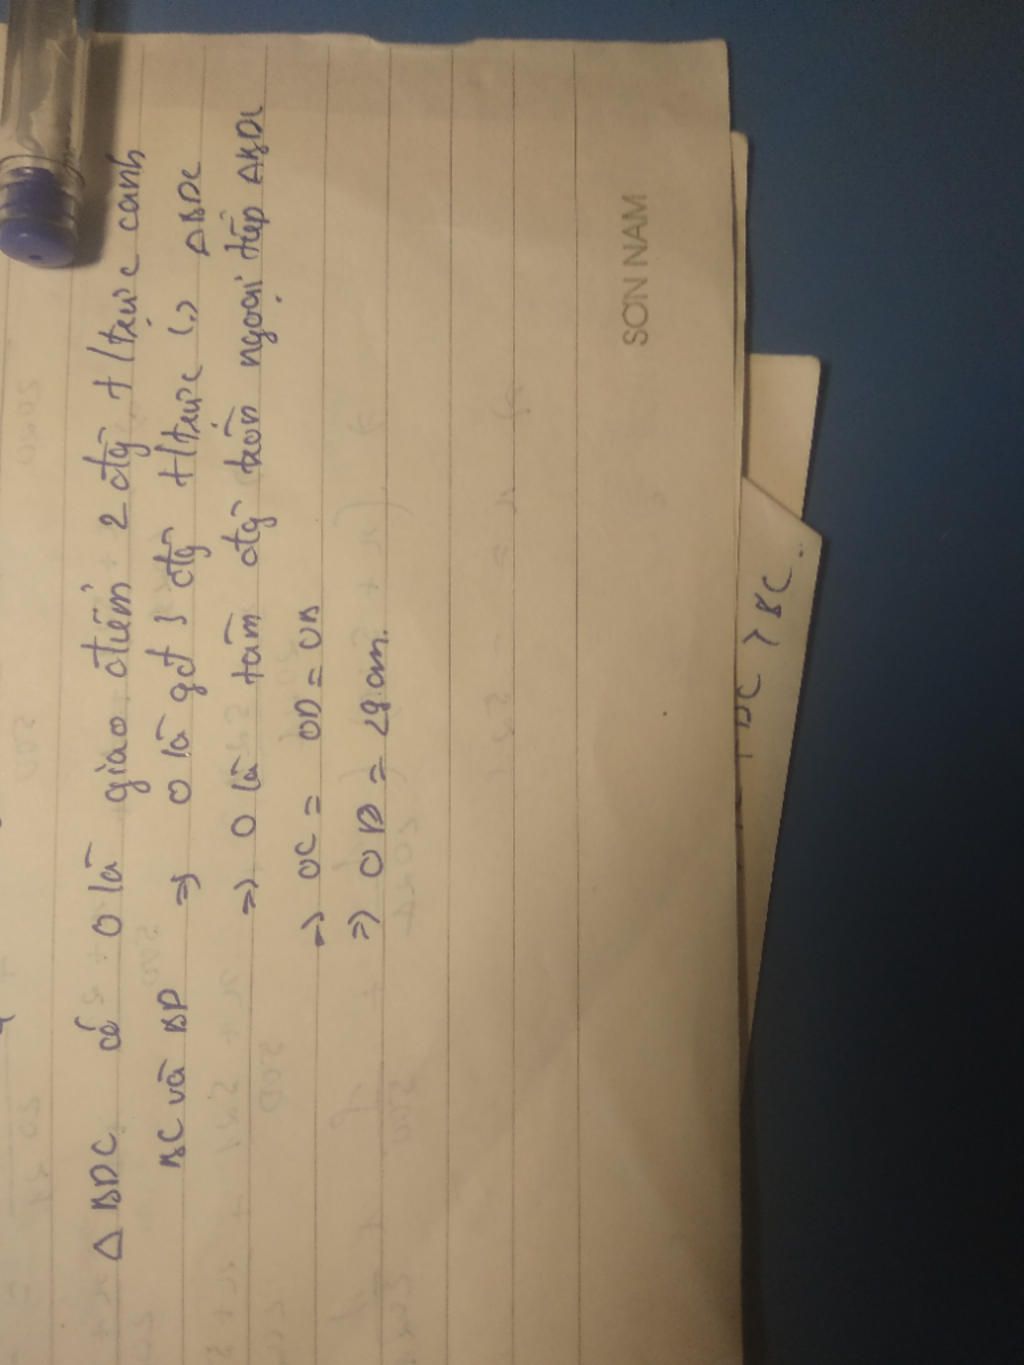 Δ BDC có O là giao điểm 2 đg̃ t/trực cạnh
BC và BD ⇒ O là gđ 3 đg̃ t/trực (.) ΔBDC
⇒ O là tâm đg̃ tròn ngoại tiếp ΔBDC
⇒ OC = OD = OB
⇒ OB = 29 cm.
SƠN NAM
DC > BC..